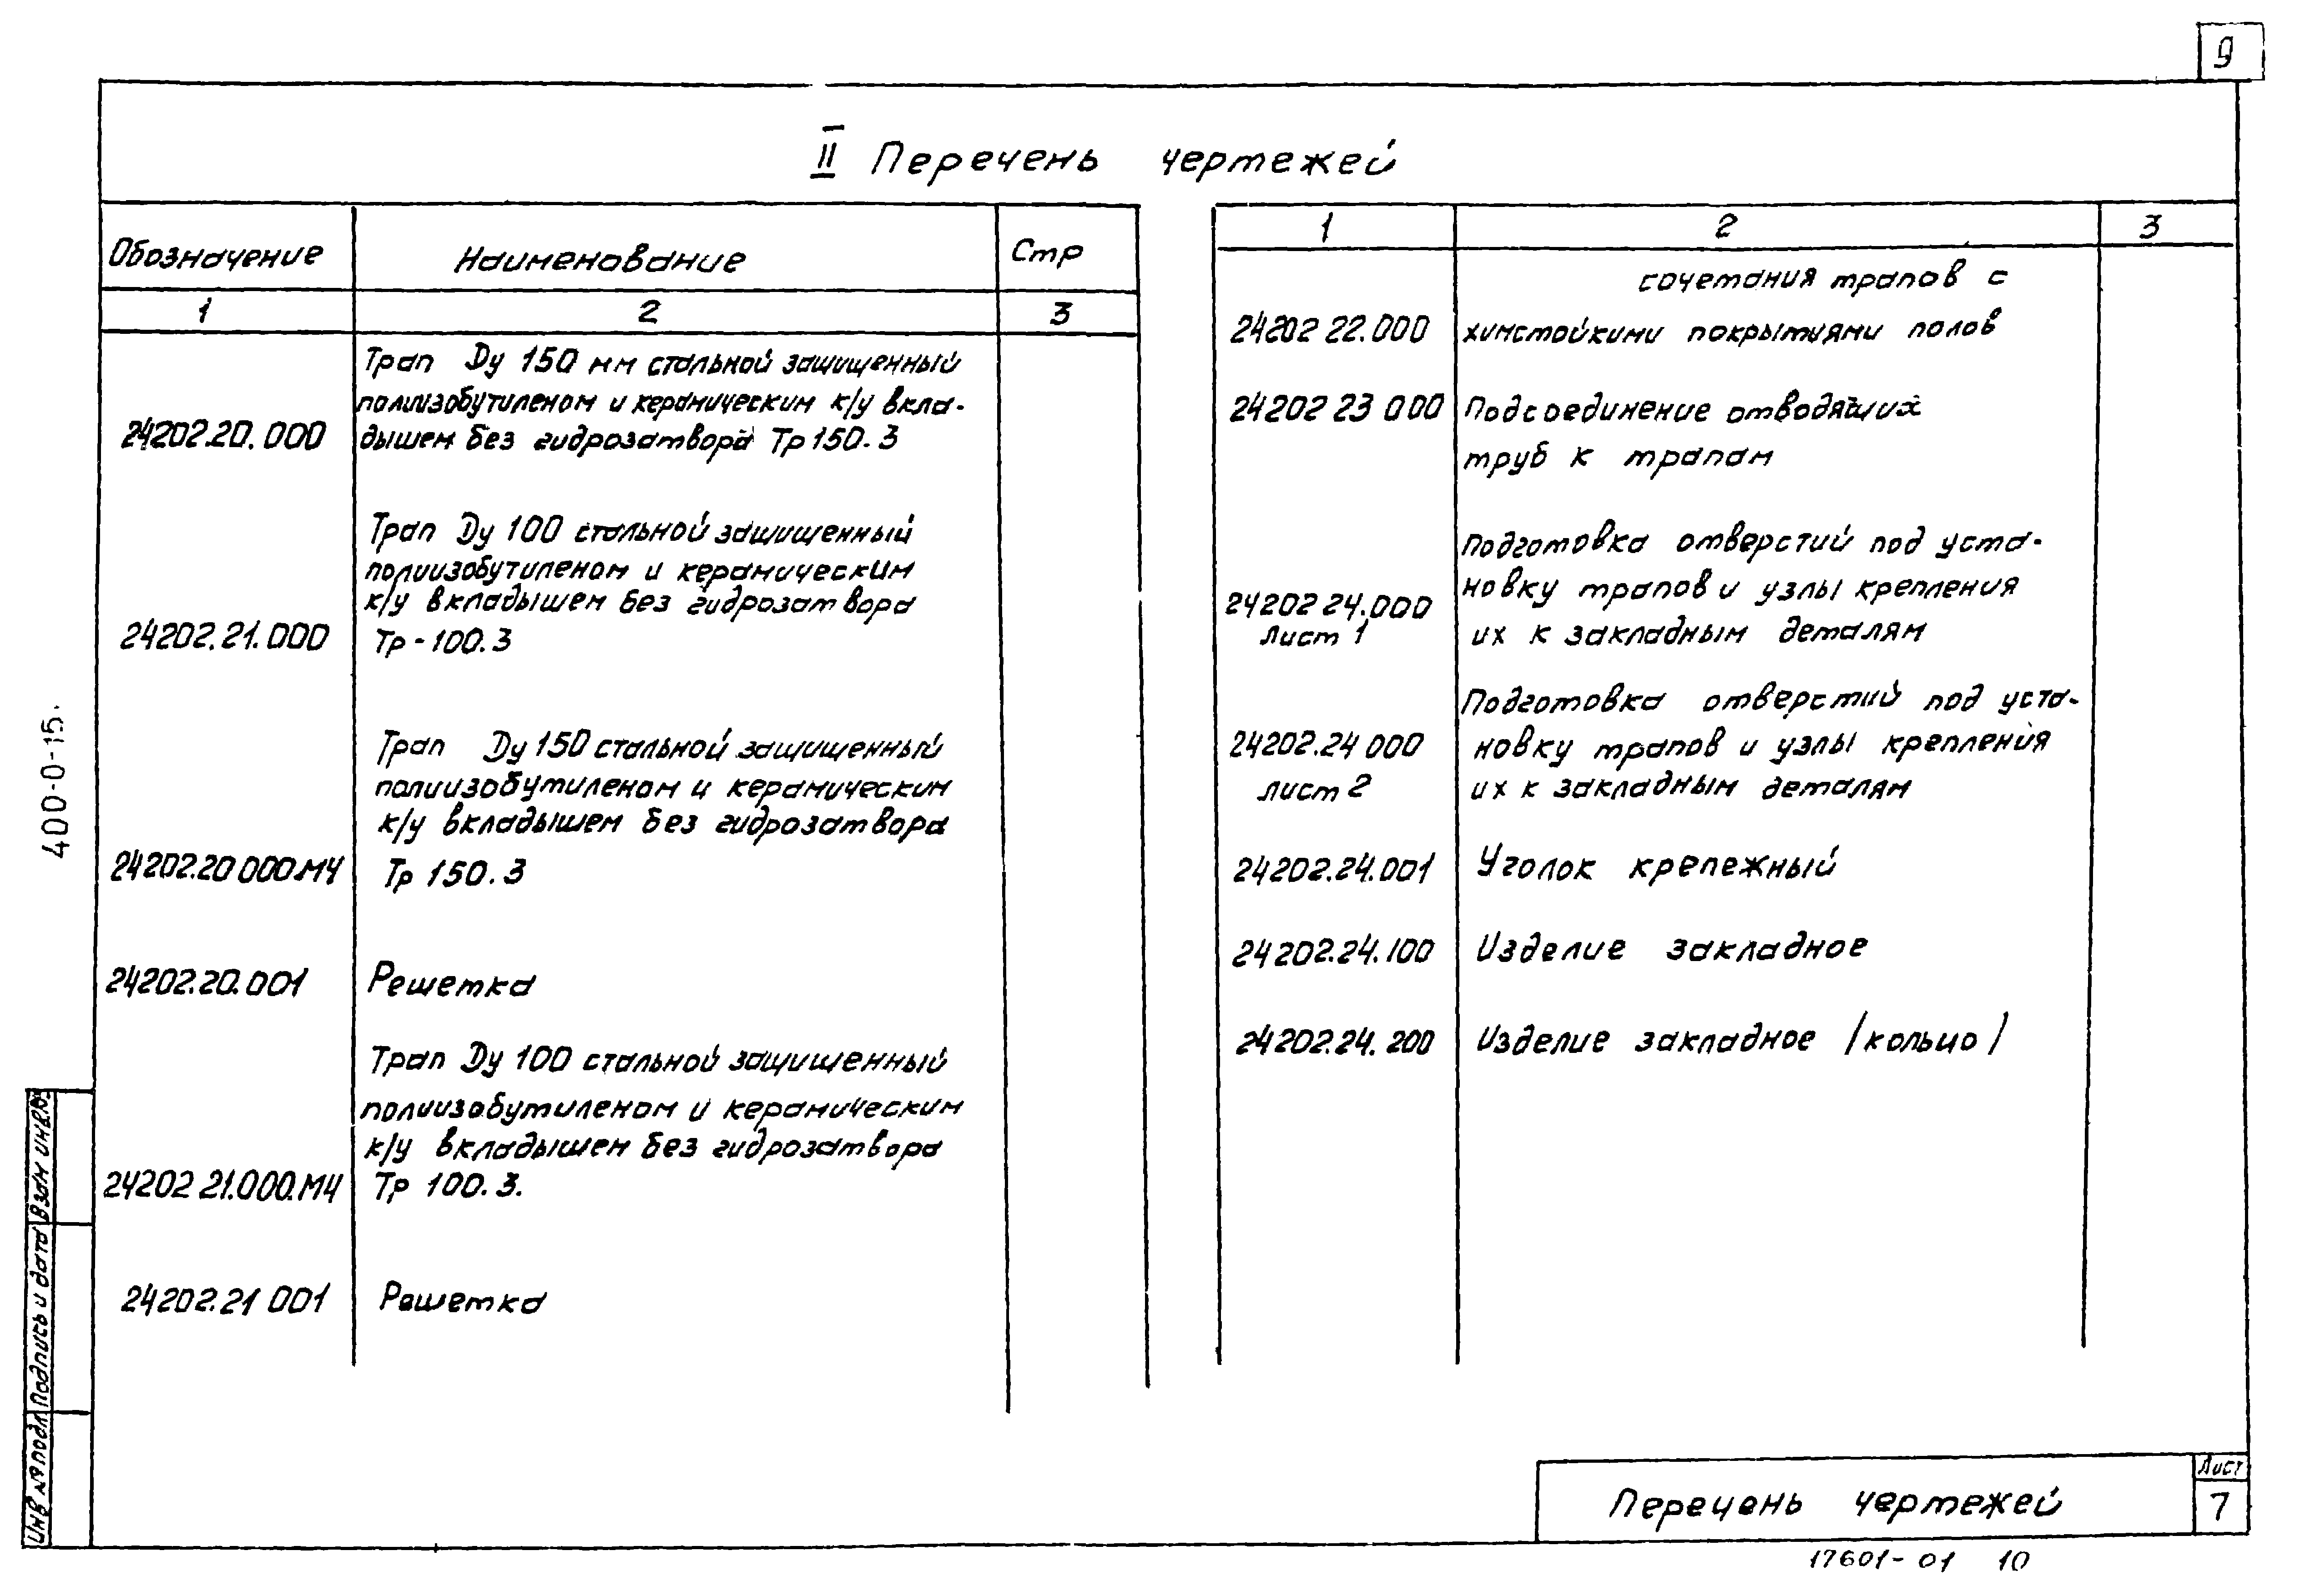 9
II Перечень чертежей
Обозначение Наименование Стр
1 2 3
Трап Ду 150 мм стальной защищенный
полиизобутиленом и керамическим к/у вкла-
24202.20.000 дышем без гидрозатвора Тр 150.3
Трап Ду 100 стальной защищенный
полиизобутиленом и керамическим
к/у вкладышем без гидрозатвора
24202.21.000 Тр-100.3
Трап Ду 150 стальной защищенный
полиизобутиленом и керамическим
к/у вкладышем без гидрозатвора
24202.20 000.МЧ Тр 150.3
24202.20.001 Решетка
Трап Ду 100 стальной защищенный
полиизобутиленом и керамическим
к/у вкладышем без гидрозатвора
24202 21.000.МЧ Тр 100.3.
24202.21 001 Решетка
1 2 3
сочетания трапов с
24202 22.000 химстойкими покрытиями полов
24202 23 000 Подсоединение отводящих
труб к трапам
Подготовка отверстий под уста-
24202 24.000 новку трапов и узлы крепления
Лист 1 их к закладным деталям
Подготовка отверстий под уста-
24202.24 000 новку трапов и узлы крепления
лист 2 их к закладным деталям
24202.24.001 Уголок крепежный
24202.24.100 Изделие закладное
24202.24.200 Изделие закладное /кольцо/
400-0-15.
Взам инв №
Подпись и дата
Инв № подл
Перечень чертежей
Лист
7
17601-01 10